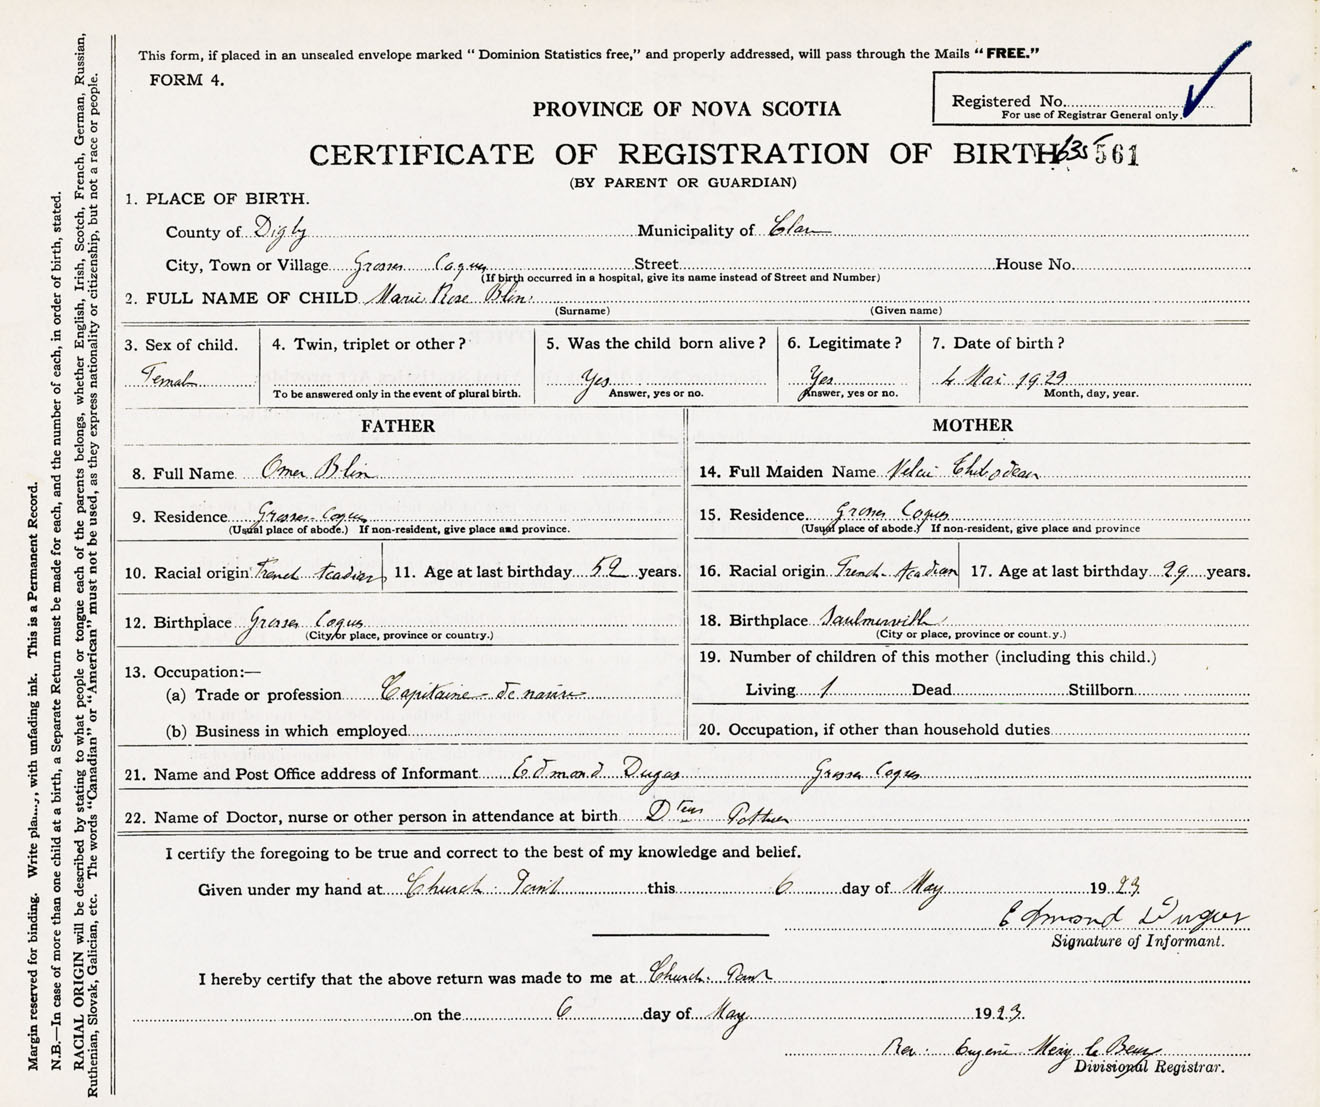 This form, if placed in an unsealed envelope marked "Dominion Statistics free," and properly addressed, will pass through the Mails "FREE."
FORM 4.
Registered No.
For use of Registrar General only.
PROVINCE OF NOVA SCOTIA
CERTIFICATE OF REGISTRATION OF BIRTH 561
(BY PARENT OR GUARDIAN)
1. PLACE OF BIRTH.
County of Digby Municipality of Clare
City, Town or Village Grosses Coques Street House No.
(If birth occurred in a hospital, give its name instead of Street and Number)
2. FULL NAME OF CHILD Marie Rose Blin
(Surname) (Given name)
3. Sex of child. 4. Twin, triplet or other? 5. Was the child born alive? 6. Legitimate? 7. Date of birth?
Female Yes Yes 4 Mai 1923
To be answered only in the event of plural birth. Answer, yes or no. Answer, yes or no. Month, day, year.
FATHER MOTHER
8. Full Name Omer Blin 14. Full Maiden Name
9. Residence Grosses Coques 15. Residence Grosses Coques
(Usual place of abode.) If non-resident, give place and province. (Usual place of abode.) If non-resident, give place and province
10. Racial origin French Acadian 11. Age at last birthday 52 years. 16. Racial origin French Acadian 17. Age at last birthday 29 years.
12. Birthplace Grosses Coques 18. Birthplace Saulnierville
(City or place, province or country.) (City or place, province or count.y.)
13. Occupation:— 19. Number of children of this mother (including this child.)
(a) Trade or profession Capitaine de navire Living 1 Dead Stillborn
(b) Business in which employed 20. Occupation, if other than household duties
21. Name and Post Office address of Informant Edmond Dugas Grosses Coques
22. Name of Doctor, nurse or other person in attendance at birth Pothier
I certify the foregoing to be true and correct to the best of my knowledge and belief.
Given under my hand at Church Point this 6 day of May 1923
Edmond Dugas
Signature of Informant.
I hereby certify that the above return was made to me at Church Point
on the 6 day of May 1923.
Rev. Eugene
Divisional Registrar.
Margin reserved for binding. Write with unfading ink. This is a Permanent Record.
N.B.—In case of more than one child at a birth, a Separate Return must be made for each, and the number of each, in order of birth, stated.
RACIAL ORIGIN will be described by stating to what people or tongue each of the parents belongs, whether English, Irish, Scotch, French, German, Russian,
Ruthenian, Slovak, Galician, etc. The words "Canadian" or "American" must not be used, as they express nationality or citizenship, but not a race or people.